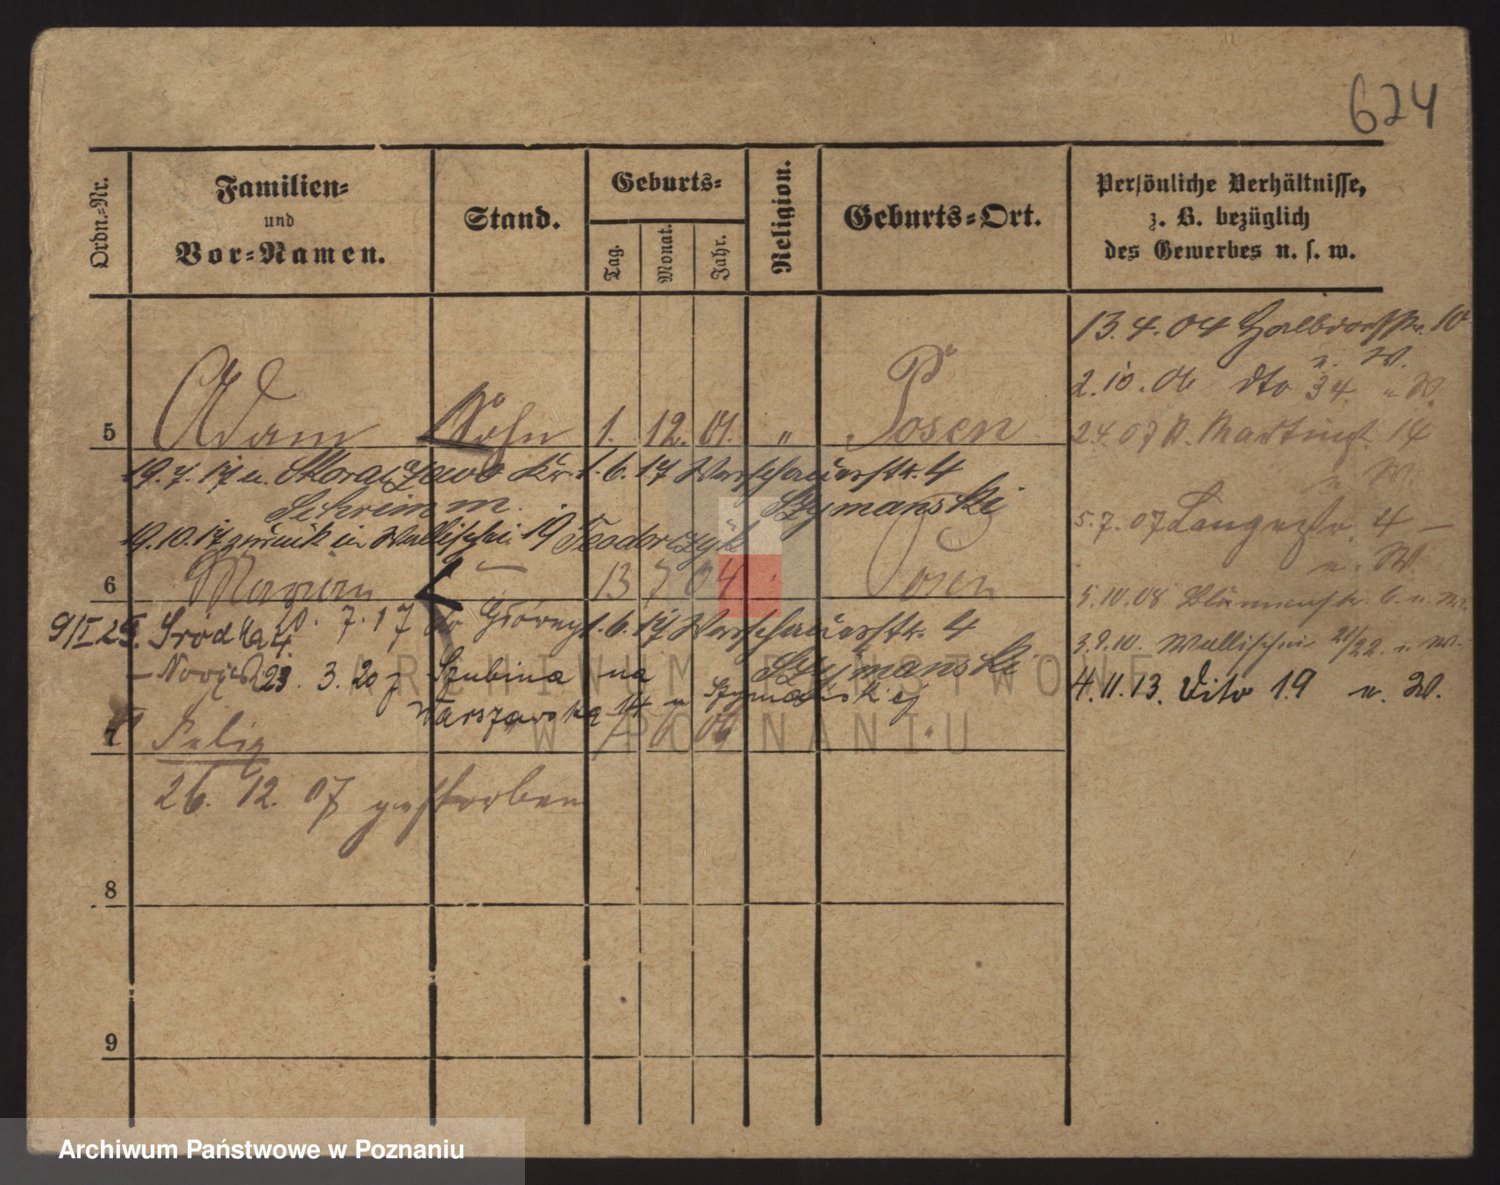 624
Ordn.-Nr.
Familien-
und
Vor-Namen.
Stand.
Geburts-
Tag.
Monat.
Jahr.
Religion.
Geburts-Ort.
Persönliche Verhältnisse,
z. B. bezüglich
des Gewerbes u. s. w.
13.4.04 Halbdorfstr. 10
u. W.
2.10.06 dto 34. u W.
2.4.07 St. Martinst. 14
u. W.
5.7.07 Langestr. 4
u. W
5.10.08 Blumenstr. 6. u. W.
3.9.10. Wallischei 21/22. u W.
4.11.13. dito 19 u. W.
5 Adam Sohn 1. 12. 01. " Posen
19.7.17 u. Kr. 1.6.17 Warschauerstr. 4
Schrimm. Szymanski
19.10.17 zurück in Wallischei 19 Teodorczyk
6 Marian 13 7 04 Posen
9/I 25. Śródka 4. 7.17 1.6.17 Warschauerstr. 4
23. 3. 20 z Szubina na Szymanski
Warszawska 14 u Szymańskiej
7 Felix 6 06
26. 12. 07 gestorben
8
9
ARCHIWUM PAŃSTWOWE
W POZNANIU
Archiwum Państwowe w Poznaniu